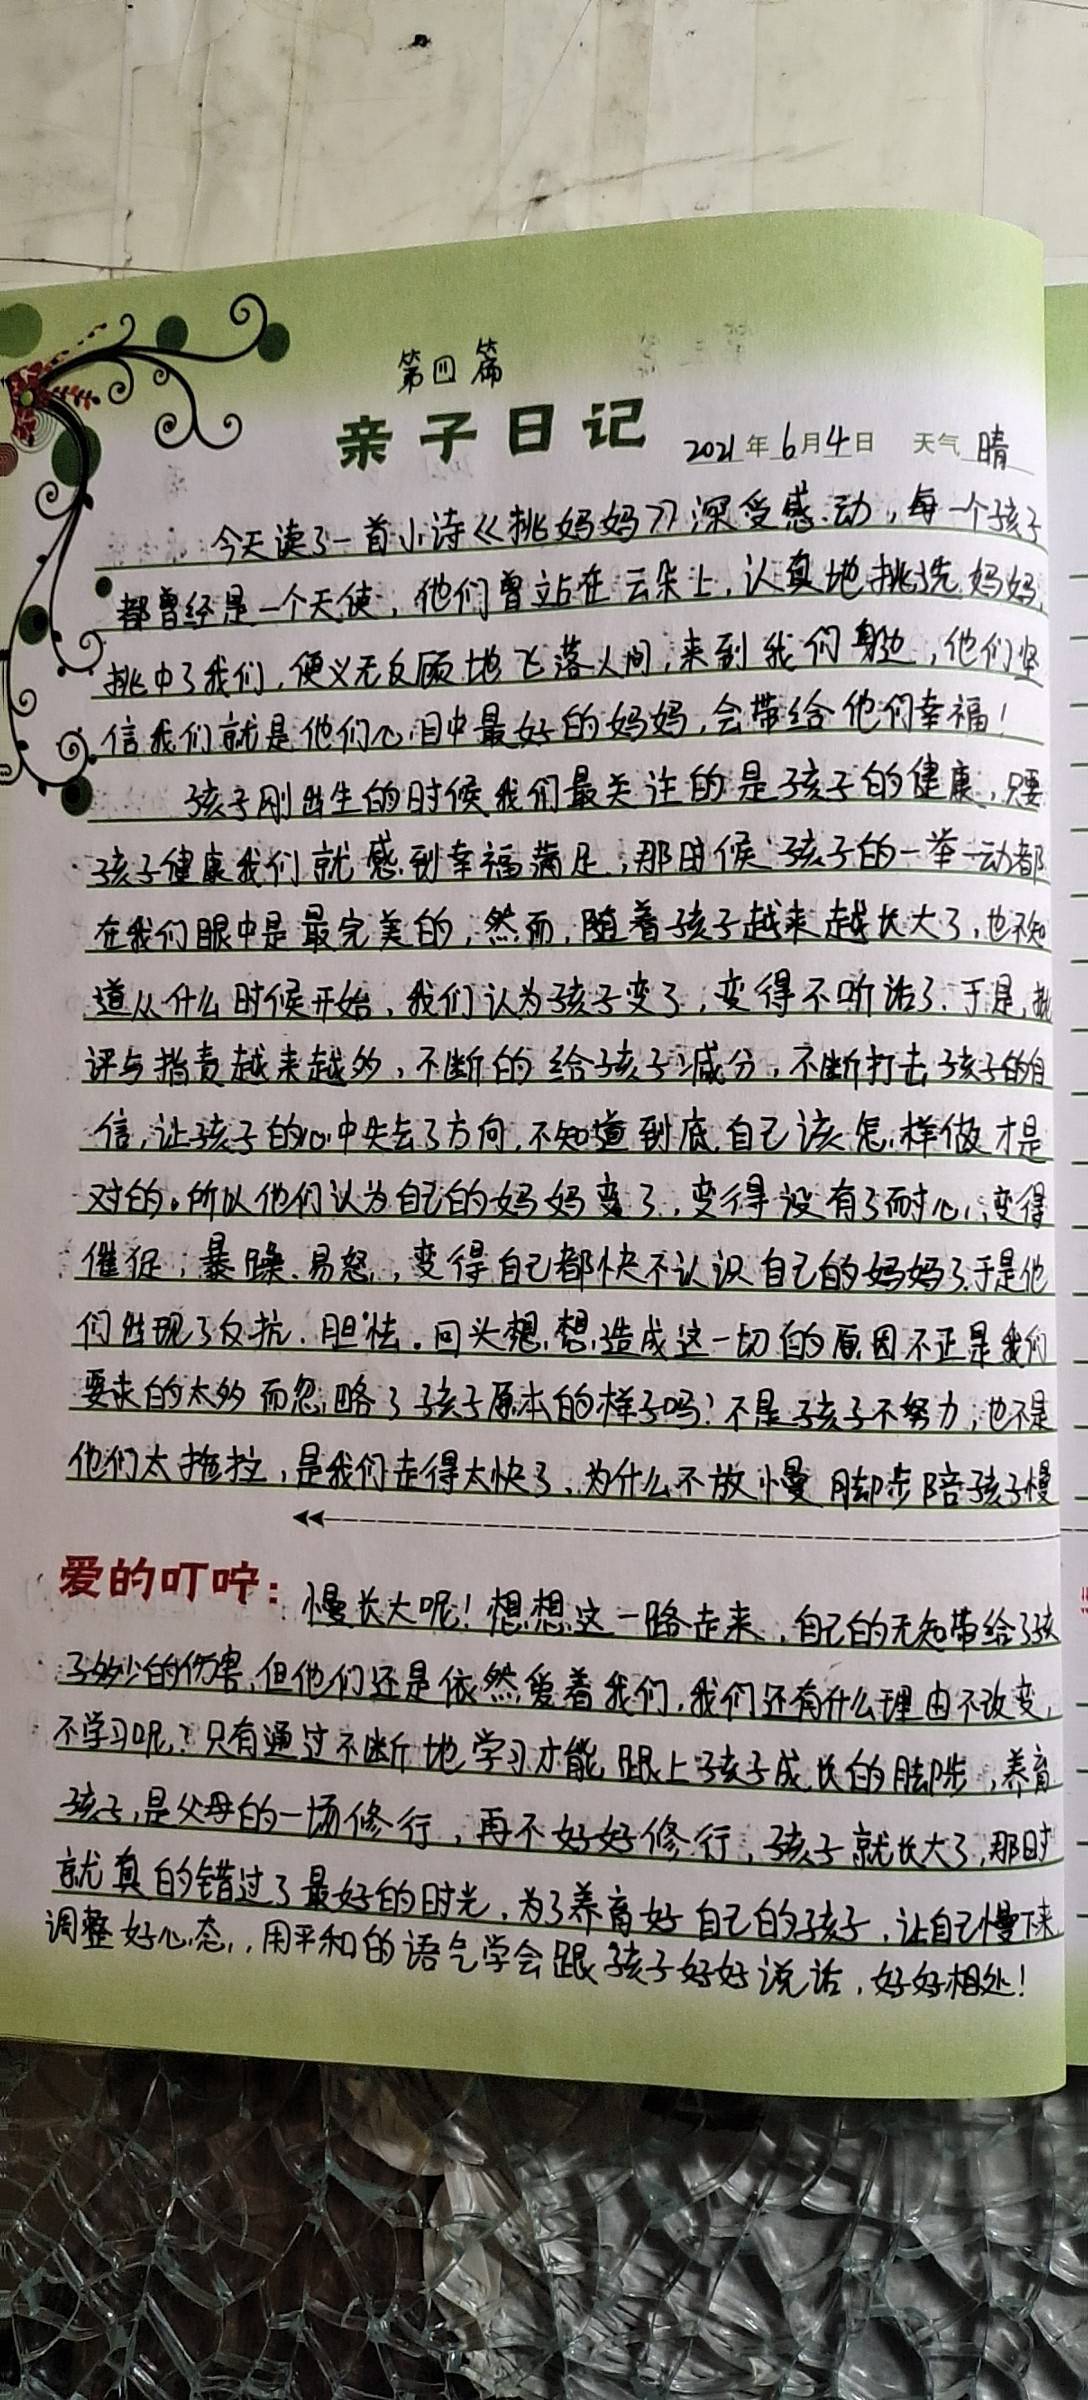 第四篇
亲子日记 2021年6月4日 天气晴
今天读了一首小诗《挑妈妈》深受感动，每一个孩子
都曾经是一个天使，他们曾立站在云朵上，认真地挑选妈妈，
挑中了我们，便义无反顾地飞落人间，来到我们身边，他们坚
信我们就是他们心目中最好的妈妈，会带给他们幸福！
孩子刚出生的时候我们最关注的是孩子的健康，只要
孩子健康我们就感到幸福满足，那时候孩子的一举一动都
在我们眼中是最完美的，然而，随着孩子越来越长大了，也不知
道从什么时候开始，我们认为孩子变了，变得不听话了．于是，批
评与指责越来越多，不断的给孩子减分，不断打击孩子的自
信，让孩子的心中失去了方向，不知道到底自己该怎样做才是
对的。所以他们认为自己的妈妈变了，变得没有了耐心，变得
催促，暴躁、易怒，变得自己都快不认识自己的妈妈了．于是他
们出现了反抗．胆怯。回头想想，造成这一切的原因不正是我们
要求的太多而忽略了孩子原本的样子吗？不是孩子不努力，也不是
他们太拖拉，是我们走得太快了，为什么不放慢脚步陪孩子慢
爱的叮咛：慢长大呢！想想这一路走来，自己的无知带给了孩
子多少的伤害，但他们还是依然爱着我们，我们还有什么理由不改变，
不学习呢？只有通过不断地学习才能跟上孩子成长的脚步，养育
孩子，是父母的一场修行，再不好好修行，孩子就长大了，那时
就真的错过了最好的时光，为了养育好自己的孩子，让自己慢下来
调整好心态，用平和的语气学会跟孩子好好说话，好好相处！